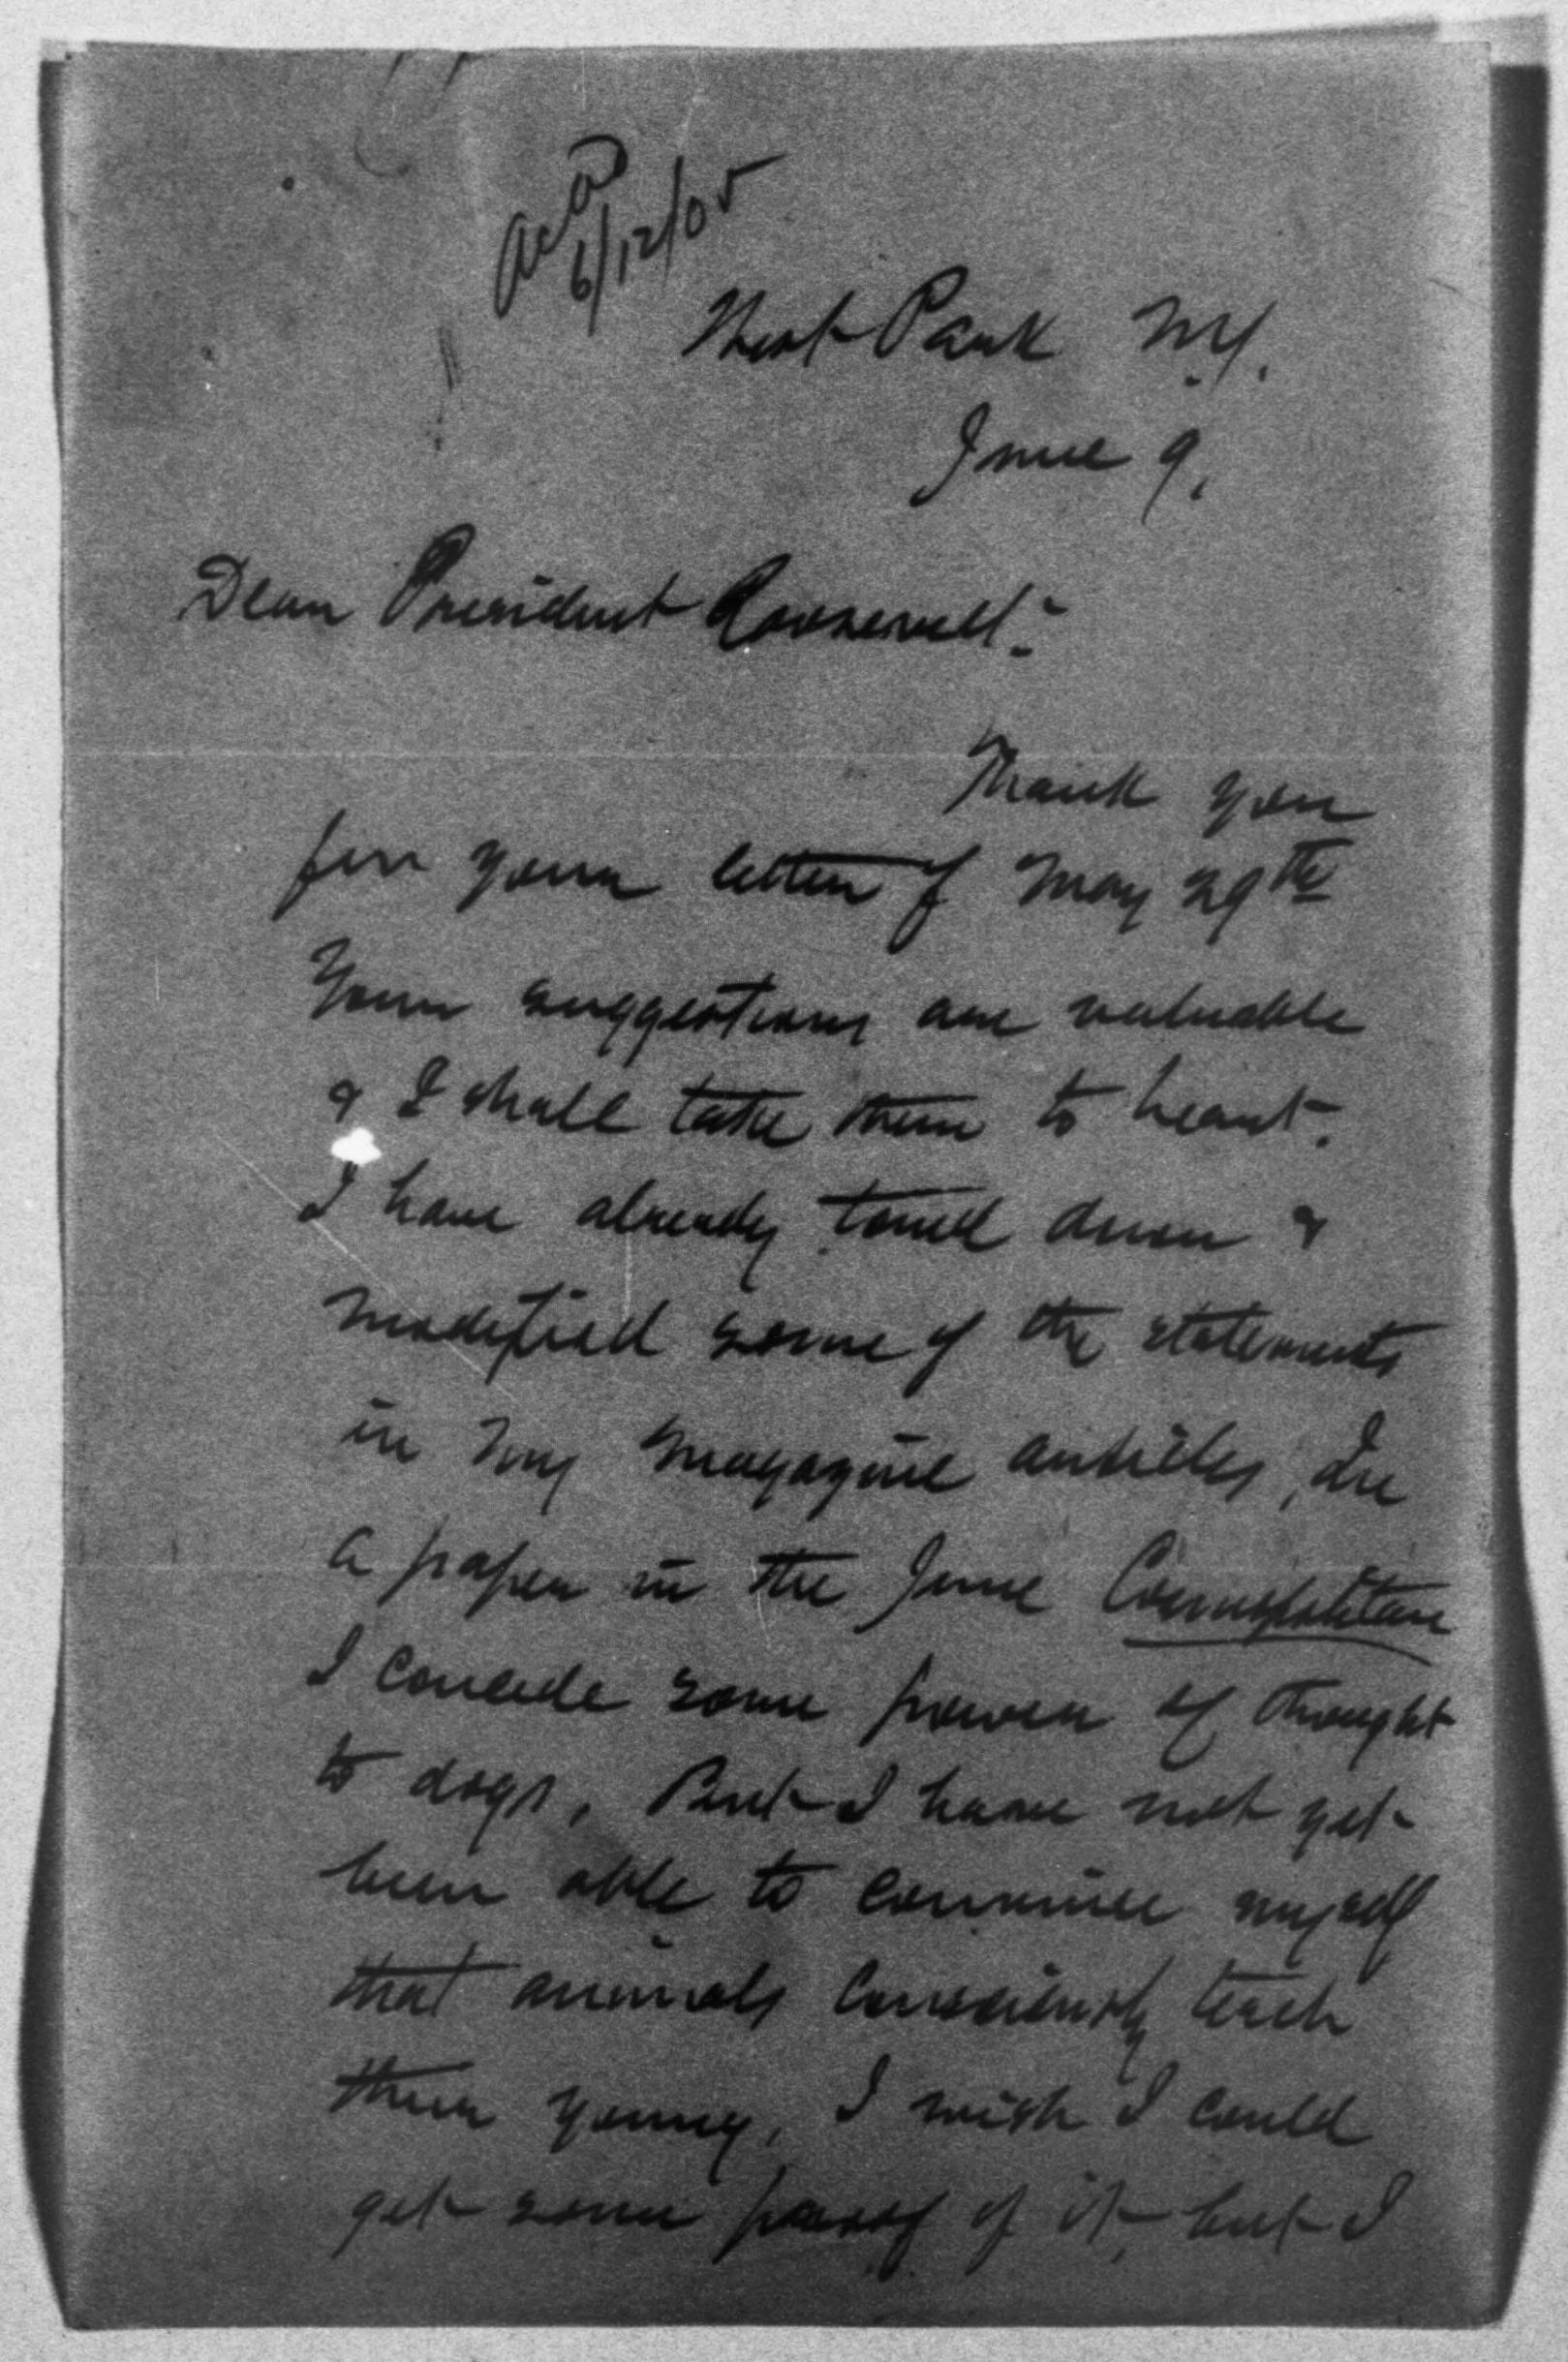 Ack'd
6/12/05
West Park N.Y.
June 9.
Dear President Roosevelt:-
Thank you
for your letter of May 29th
Your suggestions are valuable
& I shall take them to heart.
I have already toned down &
modified some of the statements
in my magazine articles, In
a paper in the June Cosmopolitan
I concede some power of thought
to dogs, But I have not yet
been able to convince myself
that animals consciously teach
their young, I wish I could
get some proof of it, but I